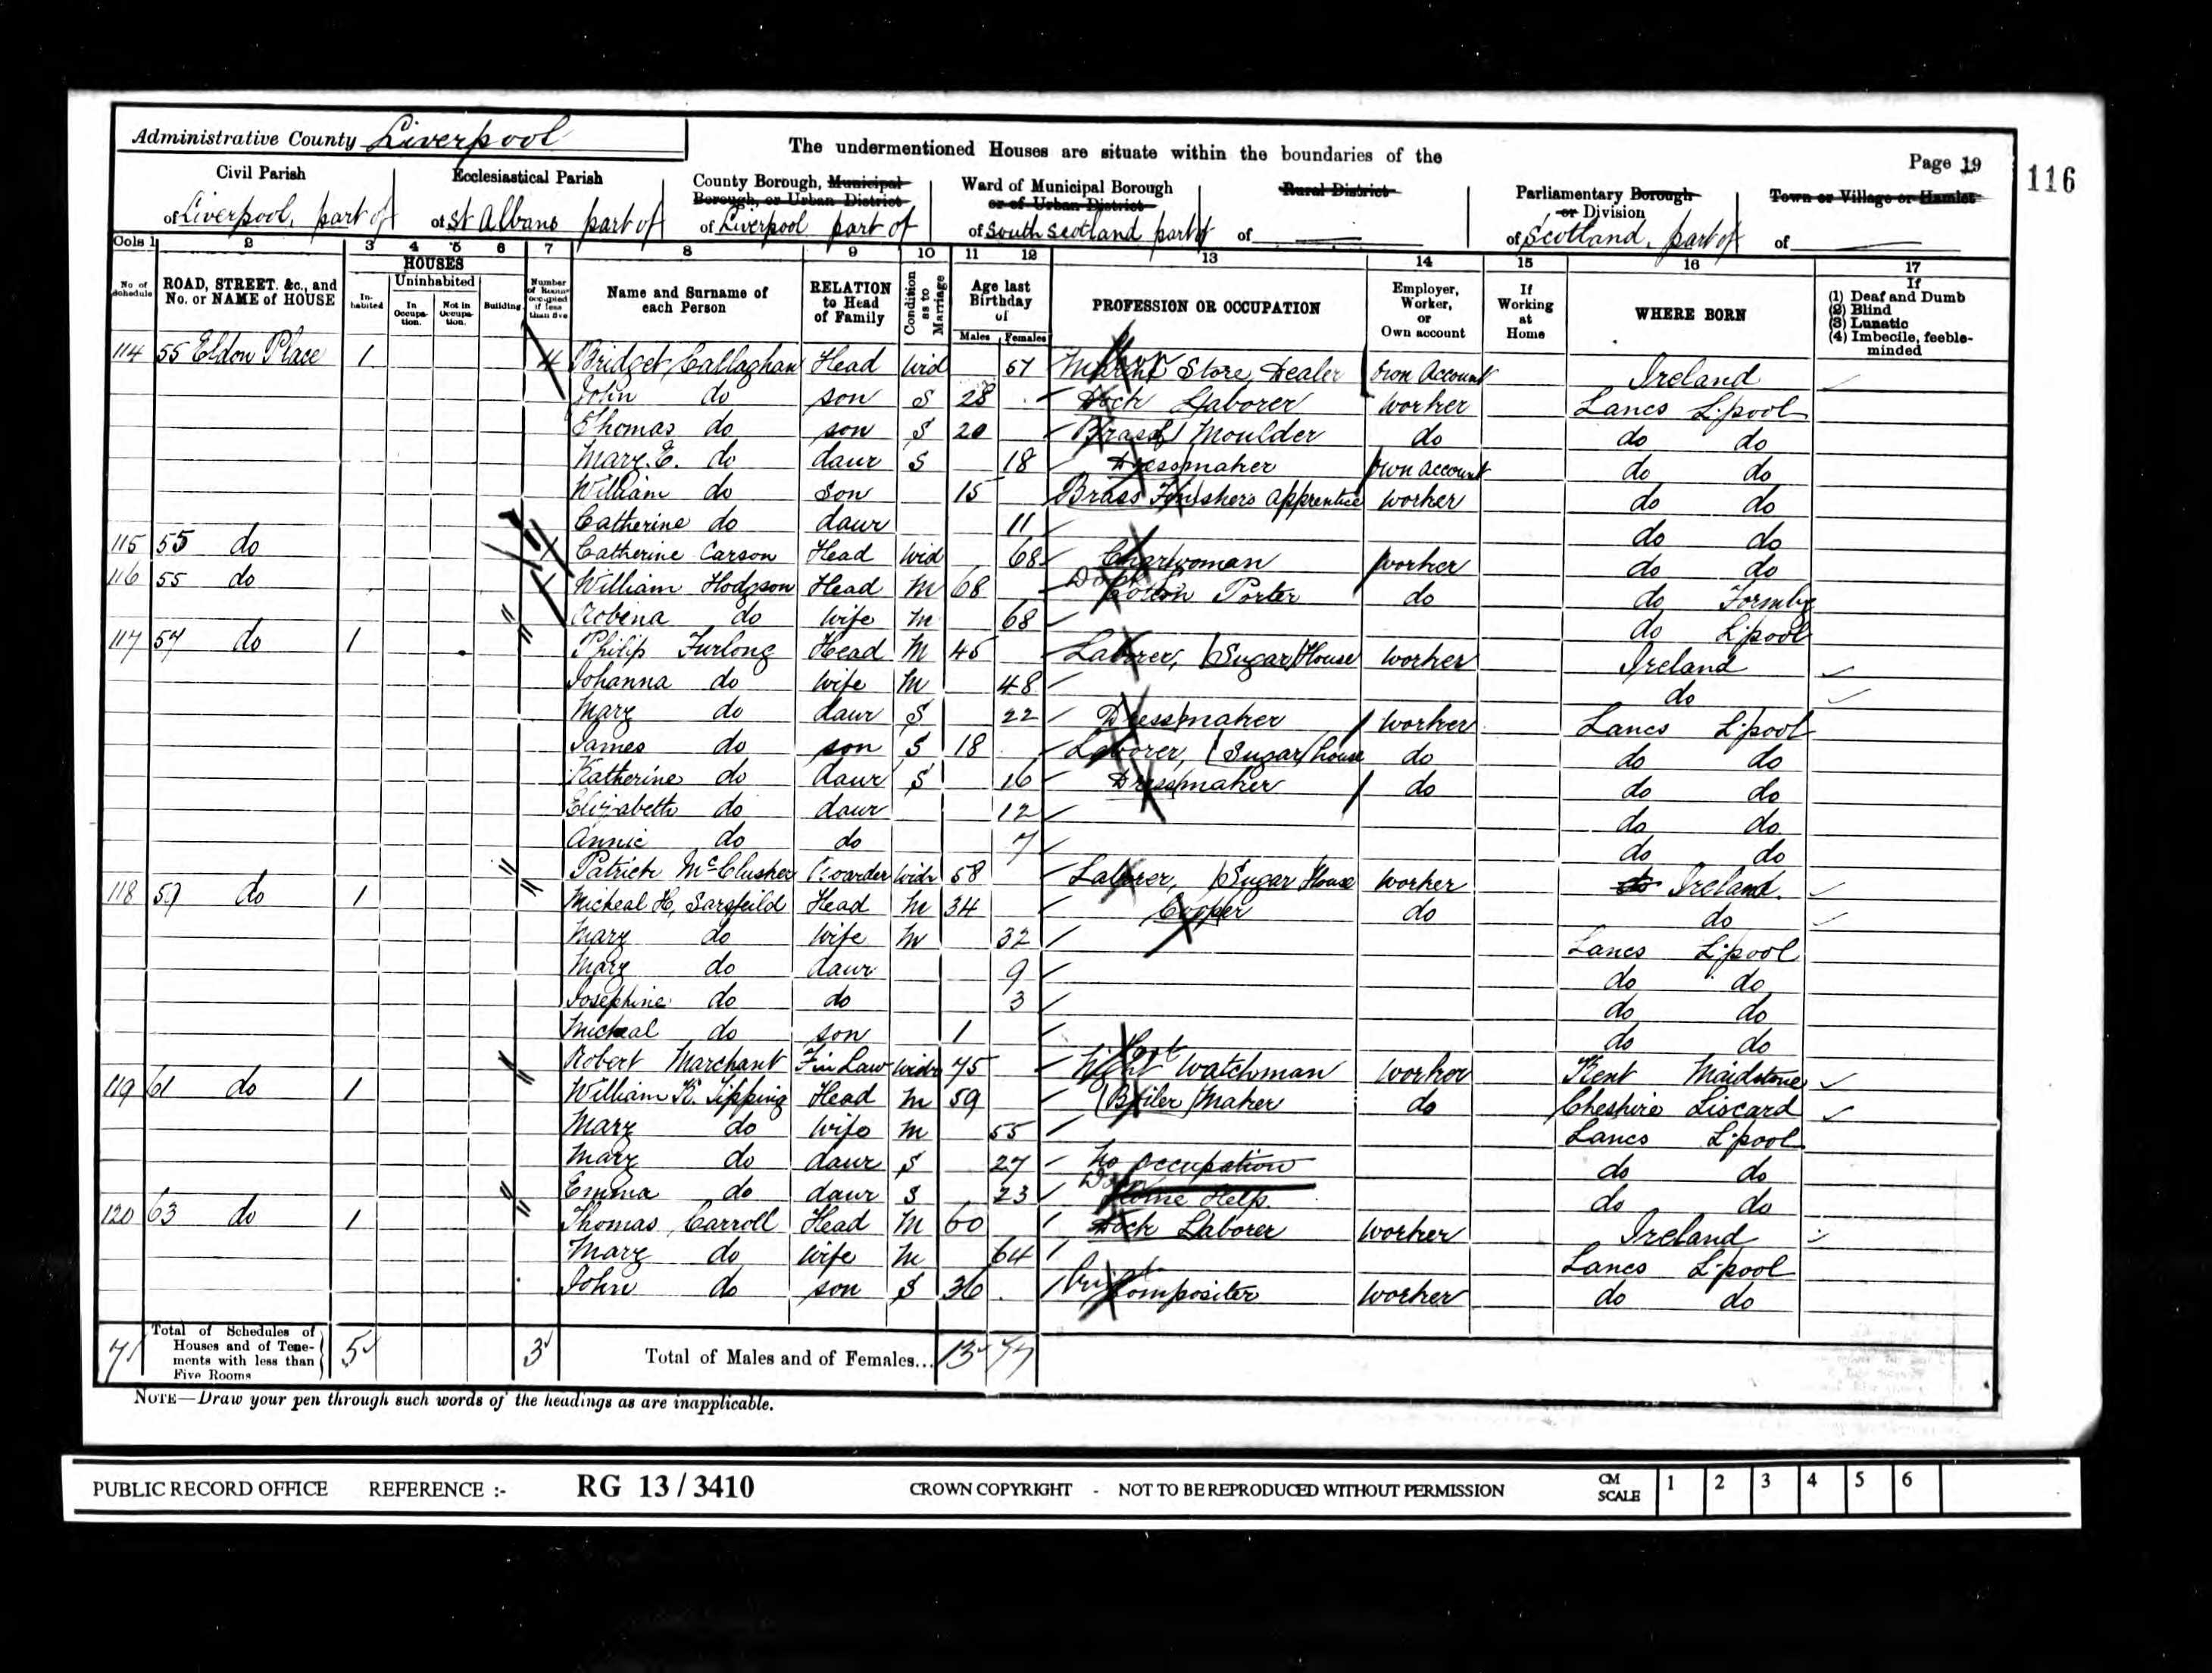 Administrative County Liverpool
The undermentioned Houses are situate within the boundaries of the
Page 19
116
Civil Parish
of Liverpool, part of
Ecclesiastical Parish
of St Albans part of
County Borough, Municipal Borough, or Urban District
of Liverpool part of
Ward of Municipal Borough or of Urban District
of South Scotland part of
Rural District
of
Parliamentary Borough or Division
of Scotland, part of
Town or Village or Hamlet
of
Cols 1 2 3 4 5 6 7 8 9 10 11 12 13 14 15 16 17
No of Schedule
ROAD, STREET, &c., and No. or NAME of HOUSE
HOUSES
In-habited
Uninhabited
In Occupa-tion.
Not in Occupa-tion.
Building
Number of Rooms occupied if less than five
Name and Surname of each Person
RELATION to Head of Family
Condition as to Marriage
Age last Birthday of
Males Females
PROFESSION OR OCCUPATION
Employer, Worker, or Own account
If Working at Home
WHERE BORN
If
(1) Deaf and Dumb
(2) Blind
(3) Lunatic
(4) Imbecile, feeble-minded
114 55 Eldon Place 1 4 Bridget Callaghan Head Wid 57 Store Dealer Own Account Ireland
John do son S 28 Dock Laborer Worker Lancs L'pool
Thomas do son S 20 Brass Moulder do do do
Mary. E. do daur S 18 Dressmaker Own Account do do
William do Son 15 Brass Finishers Apprentice Worker do do
Catherine do daur 11 do do
115 55 do 1 Catherine Carson Head Wid 68 Charwoman Worker do do
116 55 do 1 William Hodgson Head M 68 Dock Cotton Porter do do Formby
Robina do Wife M 68 do L'pool
117 57 do 1 Philip Furlong Head M 45 Laborer, (Sugar House Worker Ireland
Johanna do Wife M 48 do
Mary do daur S 22 Dressmaker Worker Lancs L'pool
James do son S 18 Laborer, (Sugar house do do do
Katherine do daur S 16 Dressmaker do do do
Elizabeth do daur 12 do do
Annie do do 7 do do
Patrick McClusker Boarder Widr 58 Laborer, (Sugar House Worker do Ireland.
118 59 do 1 Micheal H, Sarsfeild Head M 34 Cooper do do
Mary do Wife M 32 Lancs L'pool
Mary do daur 9 do do
Josephine do do 3 do do
Micheal do son 1 do do
Robert Marchant F in Law Widr 75 Night Watchman Worker Kent Maidstone
119 61 do 1 William K. Tipping Head M 59 (Boiler) Maker do Cheshire Liscard
Mary do Wife M 55 Lancs L'pool
Mary do daur S 27 No occupation do do
Emma do daur S 23 Home Help. do do
120 63 do 1 Thomas Carroll Head M 60 Dock Laborer Worker Ireland
Mary do Wife M 64 Lancs L'pool
John do son S 36 Compositer Worker do do
7 Total of Schedules of Houses and of Tene-ments with less than Five Rooms 5 3 Total of Males and of Females... 13 17
NOTE—Draw your pen through such words of the headings as are inapplicable.
PUBLIC RECORD OFFICE REFERENCE :- RG 13 / 3410 CROWN COPYRIGHT - NOT TO BE REPRODUCED WITHOUT PERMISSION CM SCALE 1 2 3 4 5 6